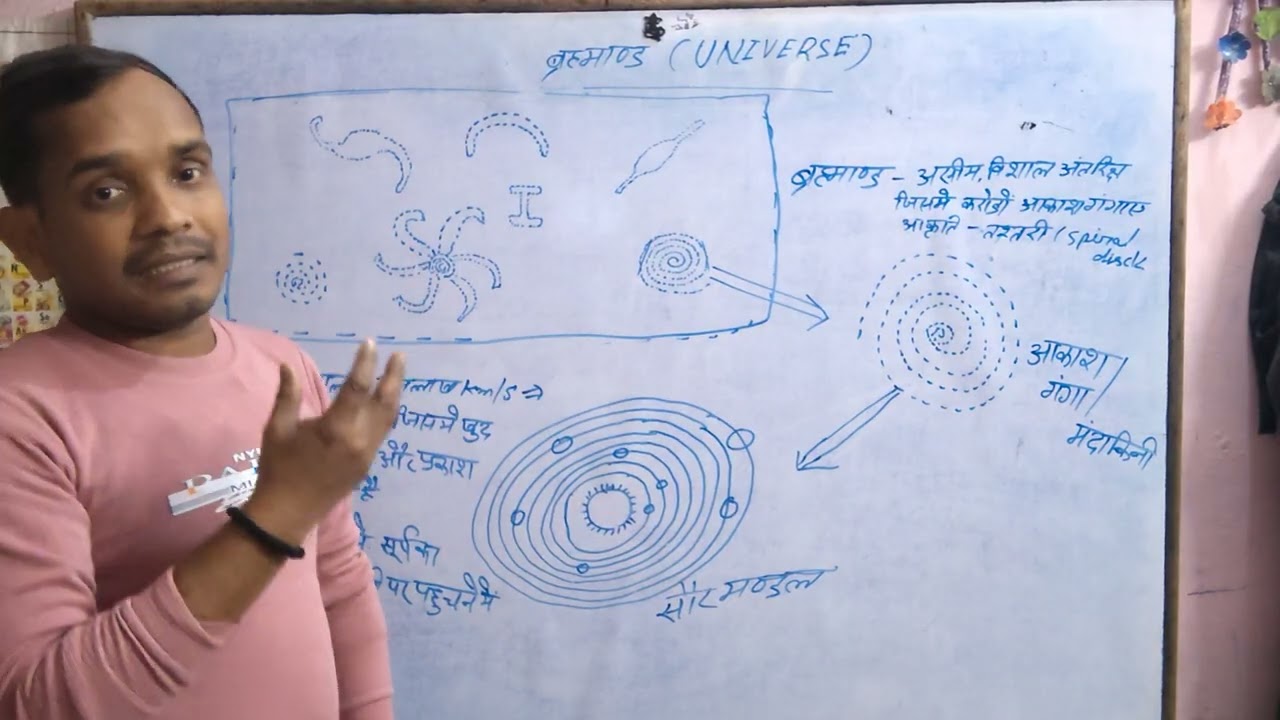 ब्रह्माण्ड (UNIVERSE)
I
ब्रह्माण्ड - असीम, विशाल अंतरिक्ष
जिसमे करोडों आकाशगंगाए
आकृति - तश्तरी / spiral
disck
आकाश /
गंगा /
मंदाकिनी
लाख km/s ⇒
जिसमे खुद
और प्रकाश
है
सूर्य का
पर पहुचने मे
सौर मण्डल
NY